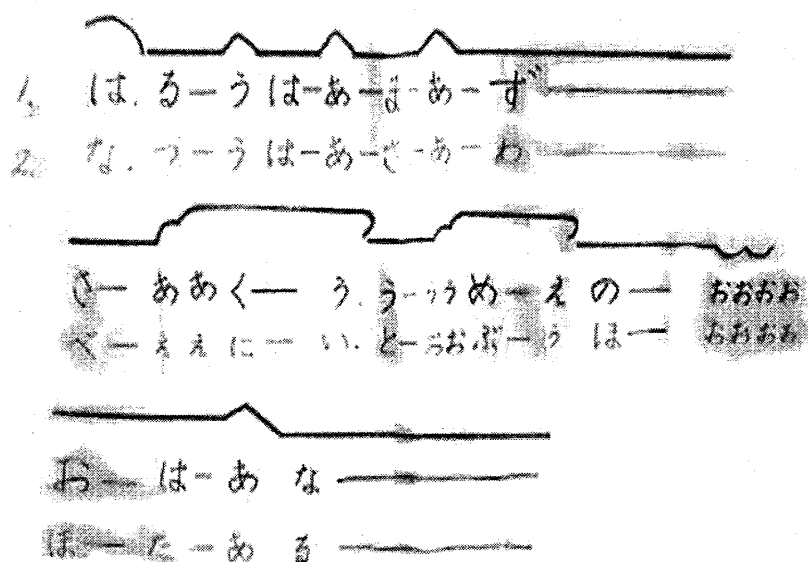 1. は.るーうはーあーまーあーず
2. な.つーうはーあーさーあーわ
さーああくーう.うーううめーえのーおおおお
べーええにーい.とーおぶーうほーおおおお
おーはーあな
ほーたーある